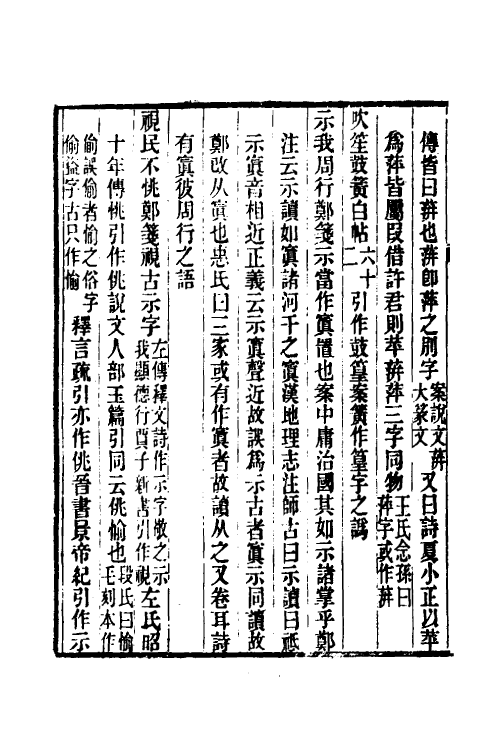 傳皆曰蓱也蓱卽萍之別字案說文蓱大篆文又曰詩夏小正以苹
爲萍皆屬叚借許君則苹蓱萍三字同物王氏念孫曰萍字或作蓱
吹笙鼓簧白帖六十二引作鼓篁案簧作篁字之譌
示我周行鄭箋示當作寘置也案中庸治國其如示諸掌乎鄭
注云示讀如寘諸河干之寘漢地理志注師古曰示讀曰祗
示寘音相近正義云示寘聲近故誤爲示古者寘示同讀故
鄭改从寘也惠氏曰三家或有作寘者故讀从之又卷耳詩
有寘彼周行之語
視民不恌鄭箋視古示字左傳釋文詩作示字傚之示我顯德行賈子新書引作視左氏昭
十年傳恌引作佻說文人部玉篇引同云佻愉也段氏曰愉毛刻本作
偷誤偷者愉之俗字偷盜字古只作愉釋言疏引亦作佻晉書景帝紀引作示